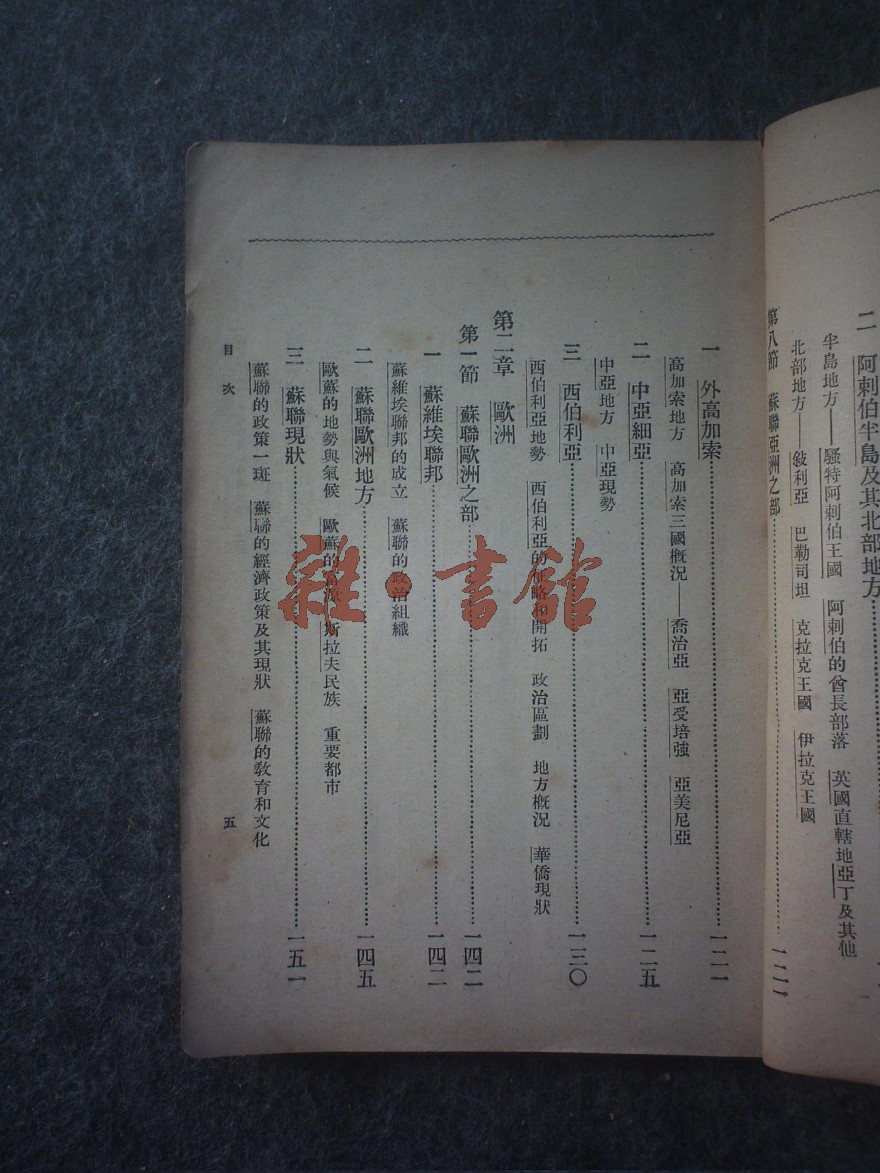 二 阿剌伯半島及其北部地方
半島地方——騷特阿剌伯王國 阿剌伯的酋長部落 英國直轄地亞丁及其他
北部地方——敍利亞 巴勒司坦 克拉克王國 伊拉克王國
第八節 蘇聯亞洲之部 一二一
一 外高加索 一二一
高加索地方 高加索三國概况——喬治亞 亞受培強 亞美尼亞
二 中亞細亞 一二五
中亞地方 中亞現勢
三 西伯利亞 一三〇
西伯利亞地勢 西伯利亞的征略和開拓 政治區劃 地方概况 華僑現狀
第二章 歐洲
第一節 蘇聯歐洲之部 一四二
一 蘇維埃聯邦 一四二
蘇維埃聯邦的成立 蘇聯的政治組織
二 蘇聯歐洲地方 一四五
歐蘇的地勢與氣候 歐蘇的富源 斯拉夫民族 重要都市
三 蘇聯現狀 一五一
蘇聯的政策一斑 蘇聯的經濟政策及其現狀 蘇聯的敎育和文化
目次 五
雜·書館